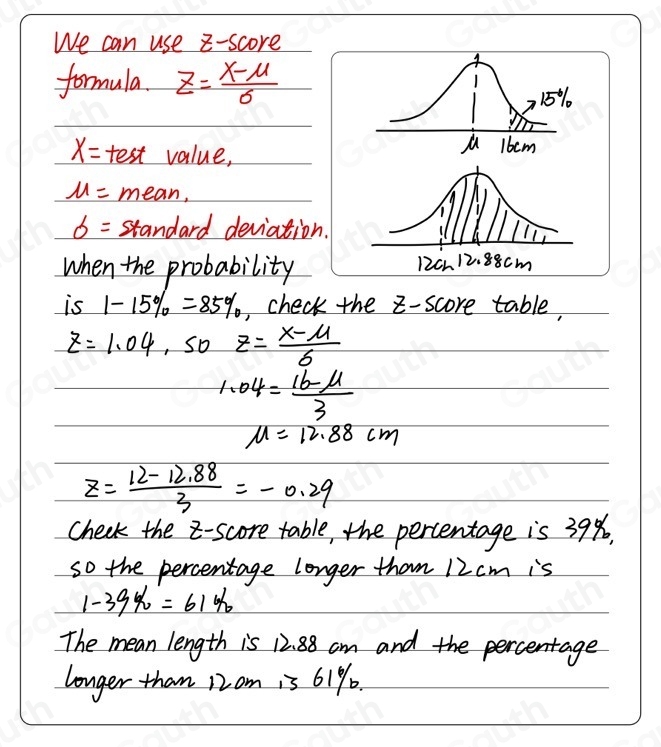 We can use z-score
formula. Z = (x-μ)/σ
X = test value,
μ = mean,
σ = standard deviation.
15%
μ 16cm
12cm 12.88cm
When the probability
is 1-15% = 85%, check the z-score table,
Z = 1.04, so Z = (x-μ)/σ
1.04 = (16-μ)/3
μ = 12.88 cm
Z = (12-12.88)/3 = -0.29
Check the z-score table, the percentage is 39%,
so the percentage longer than 12cm is
1-39% = 61%
The mean length is 12.88 cm and the percentage
longer than 12cm is 61%.
Gauth